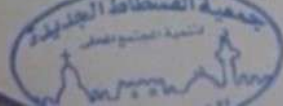 جمعية الفسطاط الجديدة
لتنمية المجتمع المحلى